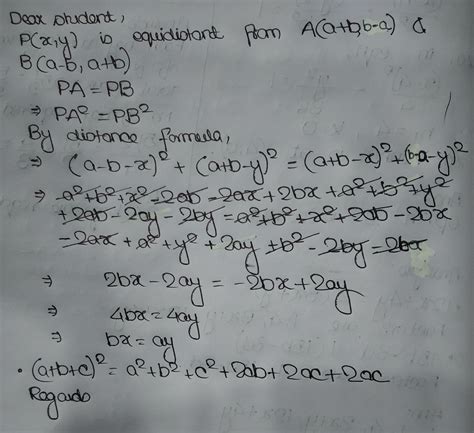 Dear student,
P(x,y) is equidistant from A(a+b,b-a) &
B(a-b, a+b)
PA = PB
⇒ PA² = PB²
By distance formula,
⇒ (a-b-x)² + (a+b-y)² = (a+b-x)² + (b-a-y)²
⇒ a²+b²+x²-2ab-2ax+2bx+a²+b²+y²
+2ab-2ay-2by=a²+b²+x²+2ab-2bx
-2ax+a²+y²+2ay+b²-2by=2bx
⇒ 2bx-2ay=-2bx+2ay
⇒ 4bx=4ay
⇒ bx=ay
• (a+b+c)² = a²+b²+c²+2ab+2ac+2ac
Regards